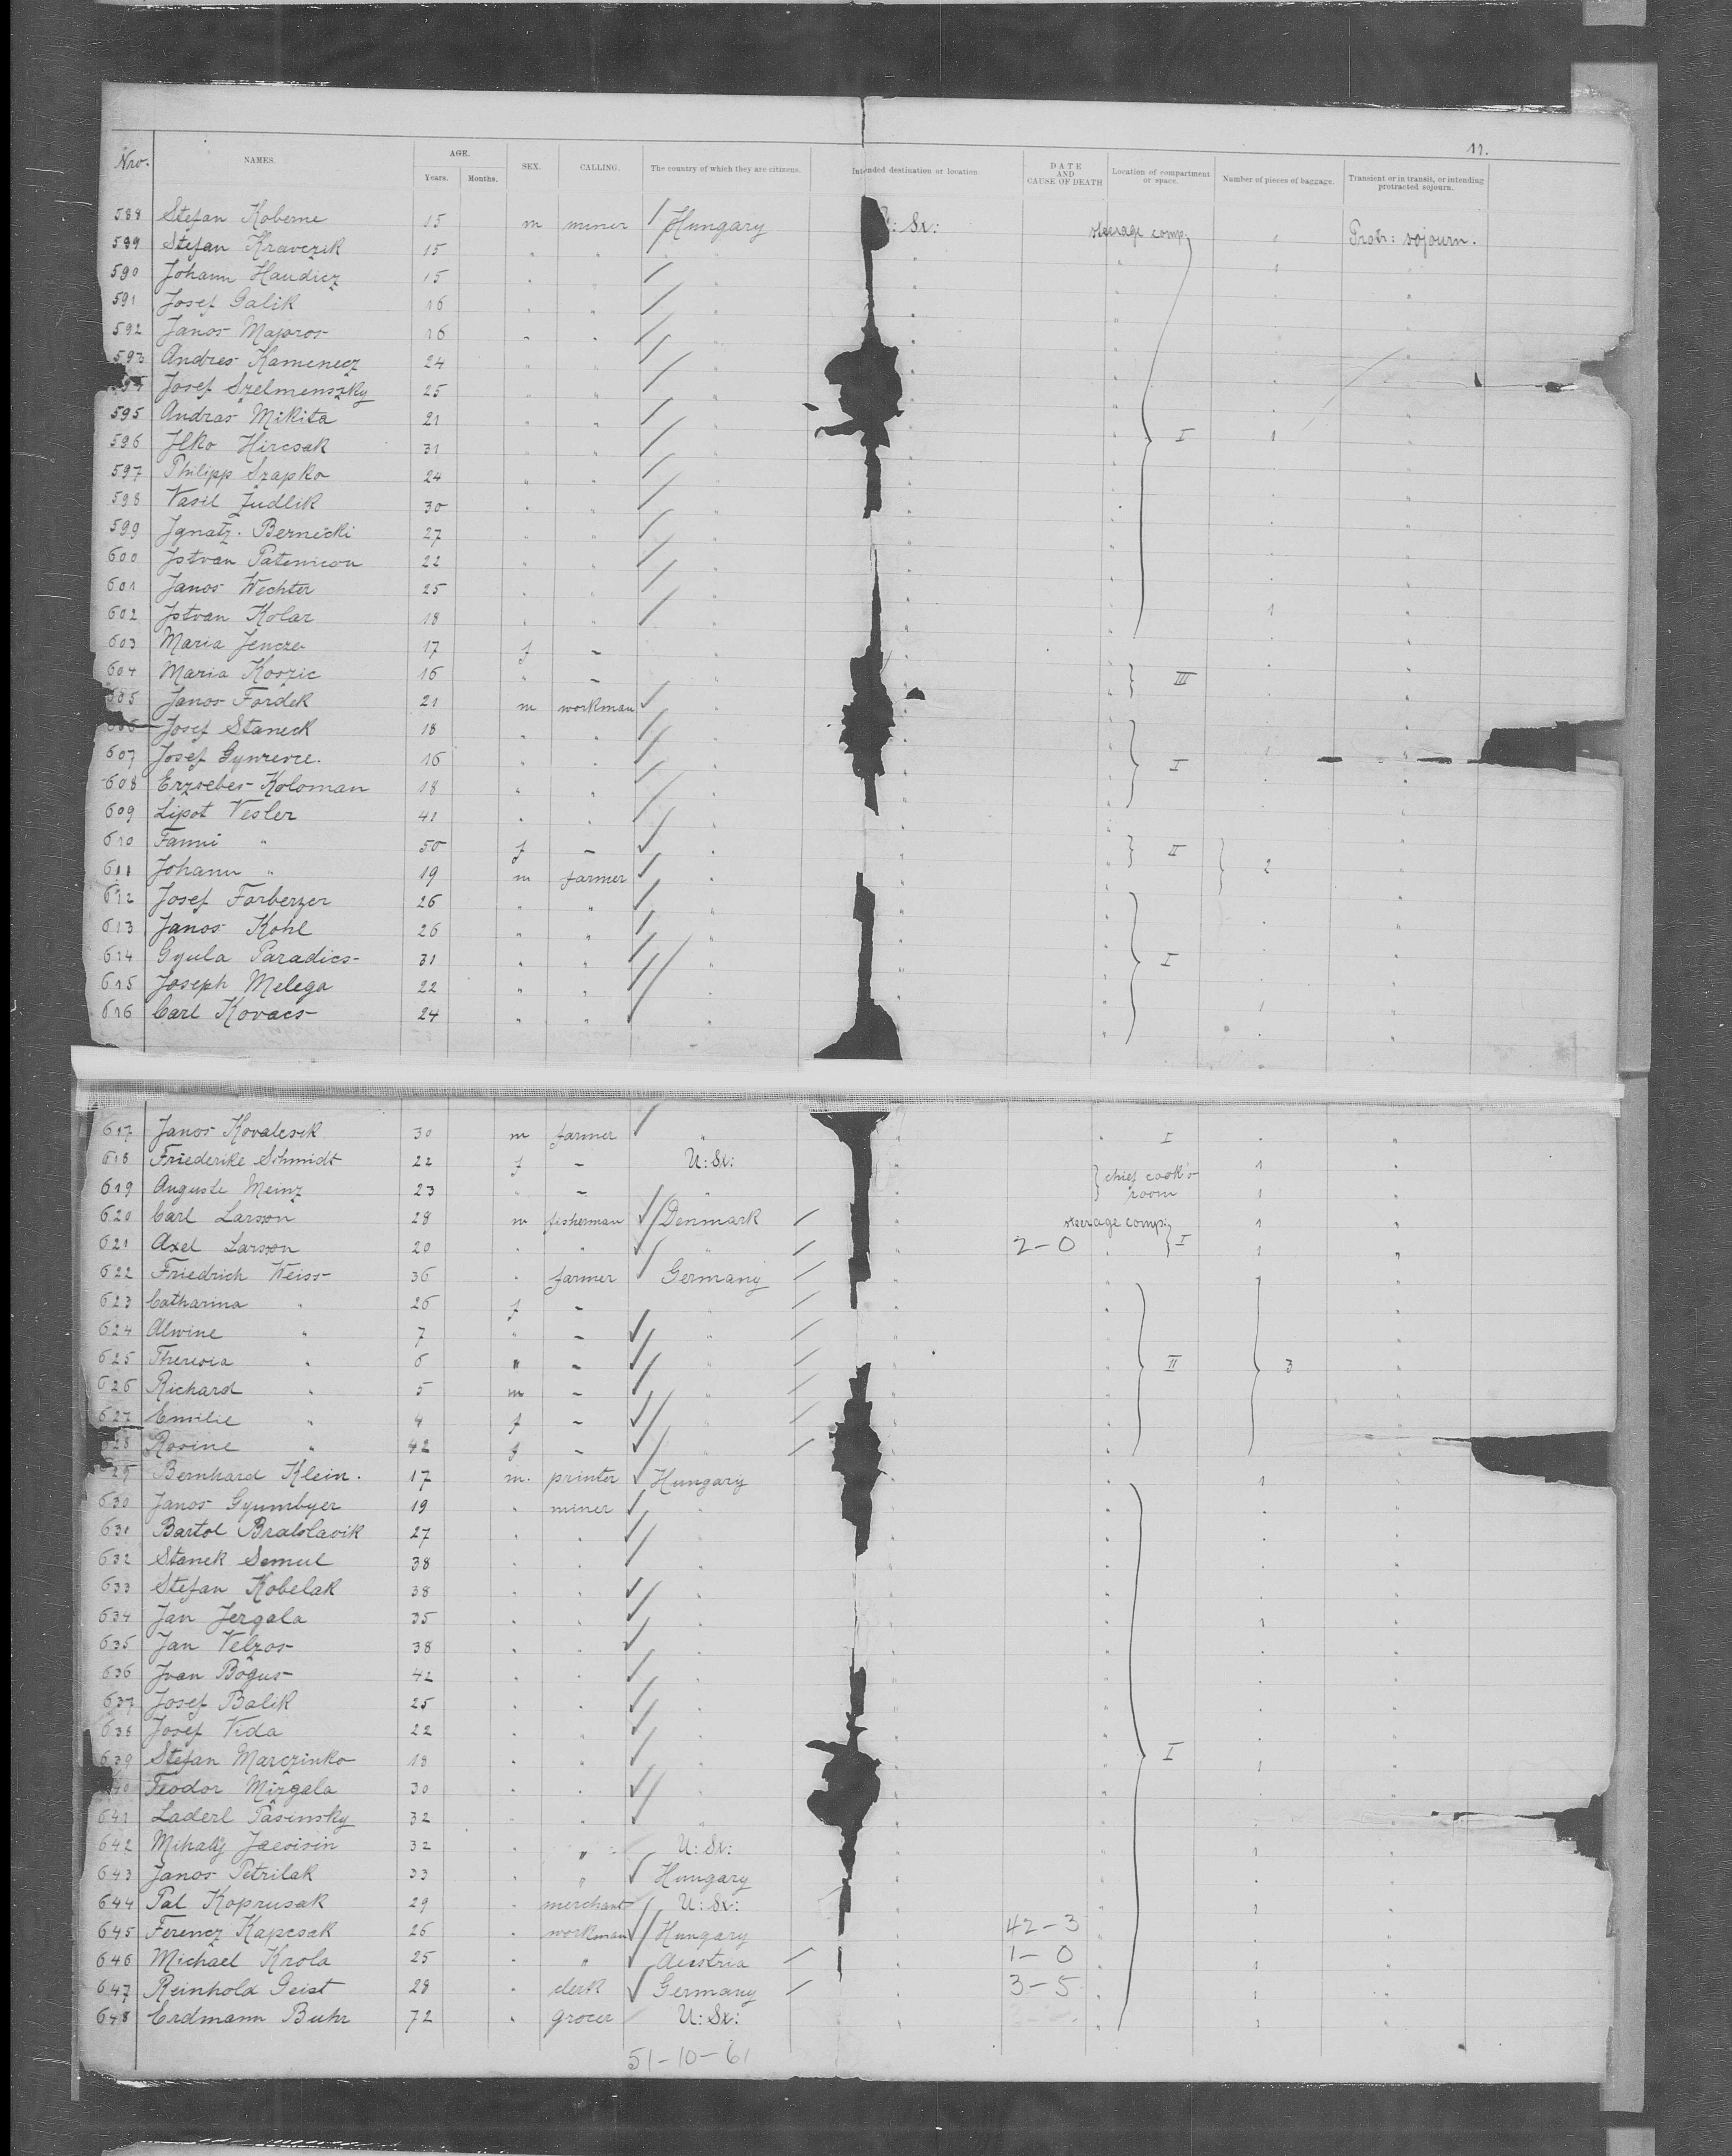 11.
Nro. NAMES. AGE. Years. Months. SEX. CALLING. The country of which they are citizens. Intended destination or location. DATE AND CAUSE OF DEATH Location of compartment or space. Number of pieces of baggage. Transient or in transit, or intending protracted sojourn.
588 Stefan Koberne 15 m miner Hungary St: steerage comp. Protr: sojourn.
589 Stefan Kravczik 15 " "
590 Johann Haudicz 15 " "
591 Josef Galik 16 " "
592 Janos Majoros 16 " "
593 Andres Kamenecz 24 " "
Josef Szelmenszky 25 " "
595 Andras Mikita 21 " "
596 Ilko Hircsak 31 " " I 1
597 Philipp Szapko 24 " "
598 Vasil Judlik 30 " "
599 Ignatz Bernicki 27 " "
600 Istvan 22 " "
601 Janos Wechter 25 " "
602 Istvan Kolar 18 " " 1
603 Maria Jencze 17 f –
604 Maria Koszic 16 " – III
605 Janos Fordek 21 m workman
606 Josef Staneck 18 " "
607 Josef 16 " " I
608 Erzsebes Koloman 18 " "
609 Lipot Vesler 41 " "
610 Fanni " 50 f – II
611 Johann " 19 m farmer 2
612 Josef Farberzer 26 " "
613 Janos Kohl 26 " "
614 Gyula Paradics 31 " " I
615 Joseph Melega 22 " "
616 Carl Kovacs 24 " " 1
617 Janos Kovalcsik 30 m farmer " I
618 Friederike Schmidt 22 f – U: St: chief cook's room 1
619 Auguste Meinz 23 " – " 1
620 Carl Larson 28 m fisherman Denmark steerage comp. 1
621 Axel Larsson 20 " " " 2–0 I 1
622 Friedrich Weiss 36 " farmer Germany
623 Catharina " 26 f –
624 Alwine " 7 " – "
625 Theresia " 6 " – " II 3
626 Richard " 5 m – "
627 Emilie " 4 f – "
628 Rosine " 42 f – "
Bernhard Klein. 17 m. printer Hungary 1
630 Janos Gyumbyer 19 " miner "
631 Bartol Bratslavik 27 " " "
632 Stanek Semul 38 " " "
633 Stefan Kobelak 38 " " "
634 Jan Jergala 35 " " " 1
635 Jan Velzos 38 " " "
636 Ivan Bogus 42 " " "
637 Josef Balik 25 " " "
638 Josef Vida 22 " " "
639 Stefan Marczinko 18 " " " I 1
Teodor Mizgala 30 " " "
641 Laderl Pasinsky 32 " " "
642 Mihaly 32 " " U: St: 1
643 Janos Petrilak 33 " " Hungary
644 Pal Koprusak 29 " merchant U: St: 1
645 Ferencz Kapcsak 26 " workman Hungary 42–3
646 Michael Krola 25 " " Austria 1–0 1
647 Reinhold Geist 28 " clerk Germany 3–5 1
648 Erdmann Buhr 72 " grocer U: St: 1
51–10–61